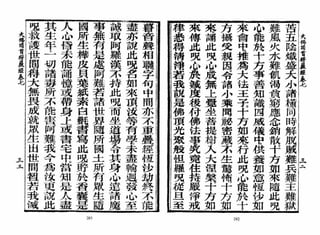 苦五陰熾盛大小諸橫同時解脫賊難兵難王難獄
難風火水難饑渴貧窮應念銷散十方如來隨此呪
心能於十方事善知識四威儀中供養如意恒沙如
來會中推為大法王子十方如來行此呪心能於十
方攝受親因令諸小乘聞祕密藏不生驚怖十方如
來誦此呪心成無上覺坐菩提樹入大涅槃十方如
來傳此呪心於滅度後付佛法事究竟住持嚴淨戒
律悉得清淨若我說是佛頂光聚般怛羅呪從旦至
262
暮音聲相聯字句中間亦不重疊經恒沙劫終不能
盡亦說此呪名如來頂汝等有學未盡輪迴發心至
誠取阿羅漢不持此呪而坐道場令其身心遠諸魔
事無有是處阿難若諸世界隨所國土所有眾生隨
國所生樺皮貝葉紙素白氎書寫此呪貯於香囊是
人心昏未能誦憶或帶身上或書宅中當知是人盡
其生年一切諸毒所不能害阿難我今為汝更說此
呪救護世間得大無畏成就眾生出世間智若我滅
263